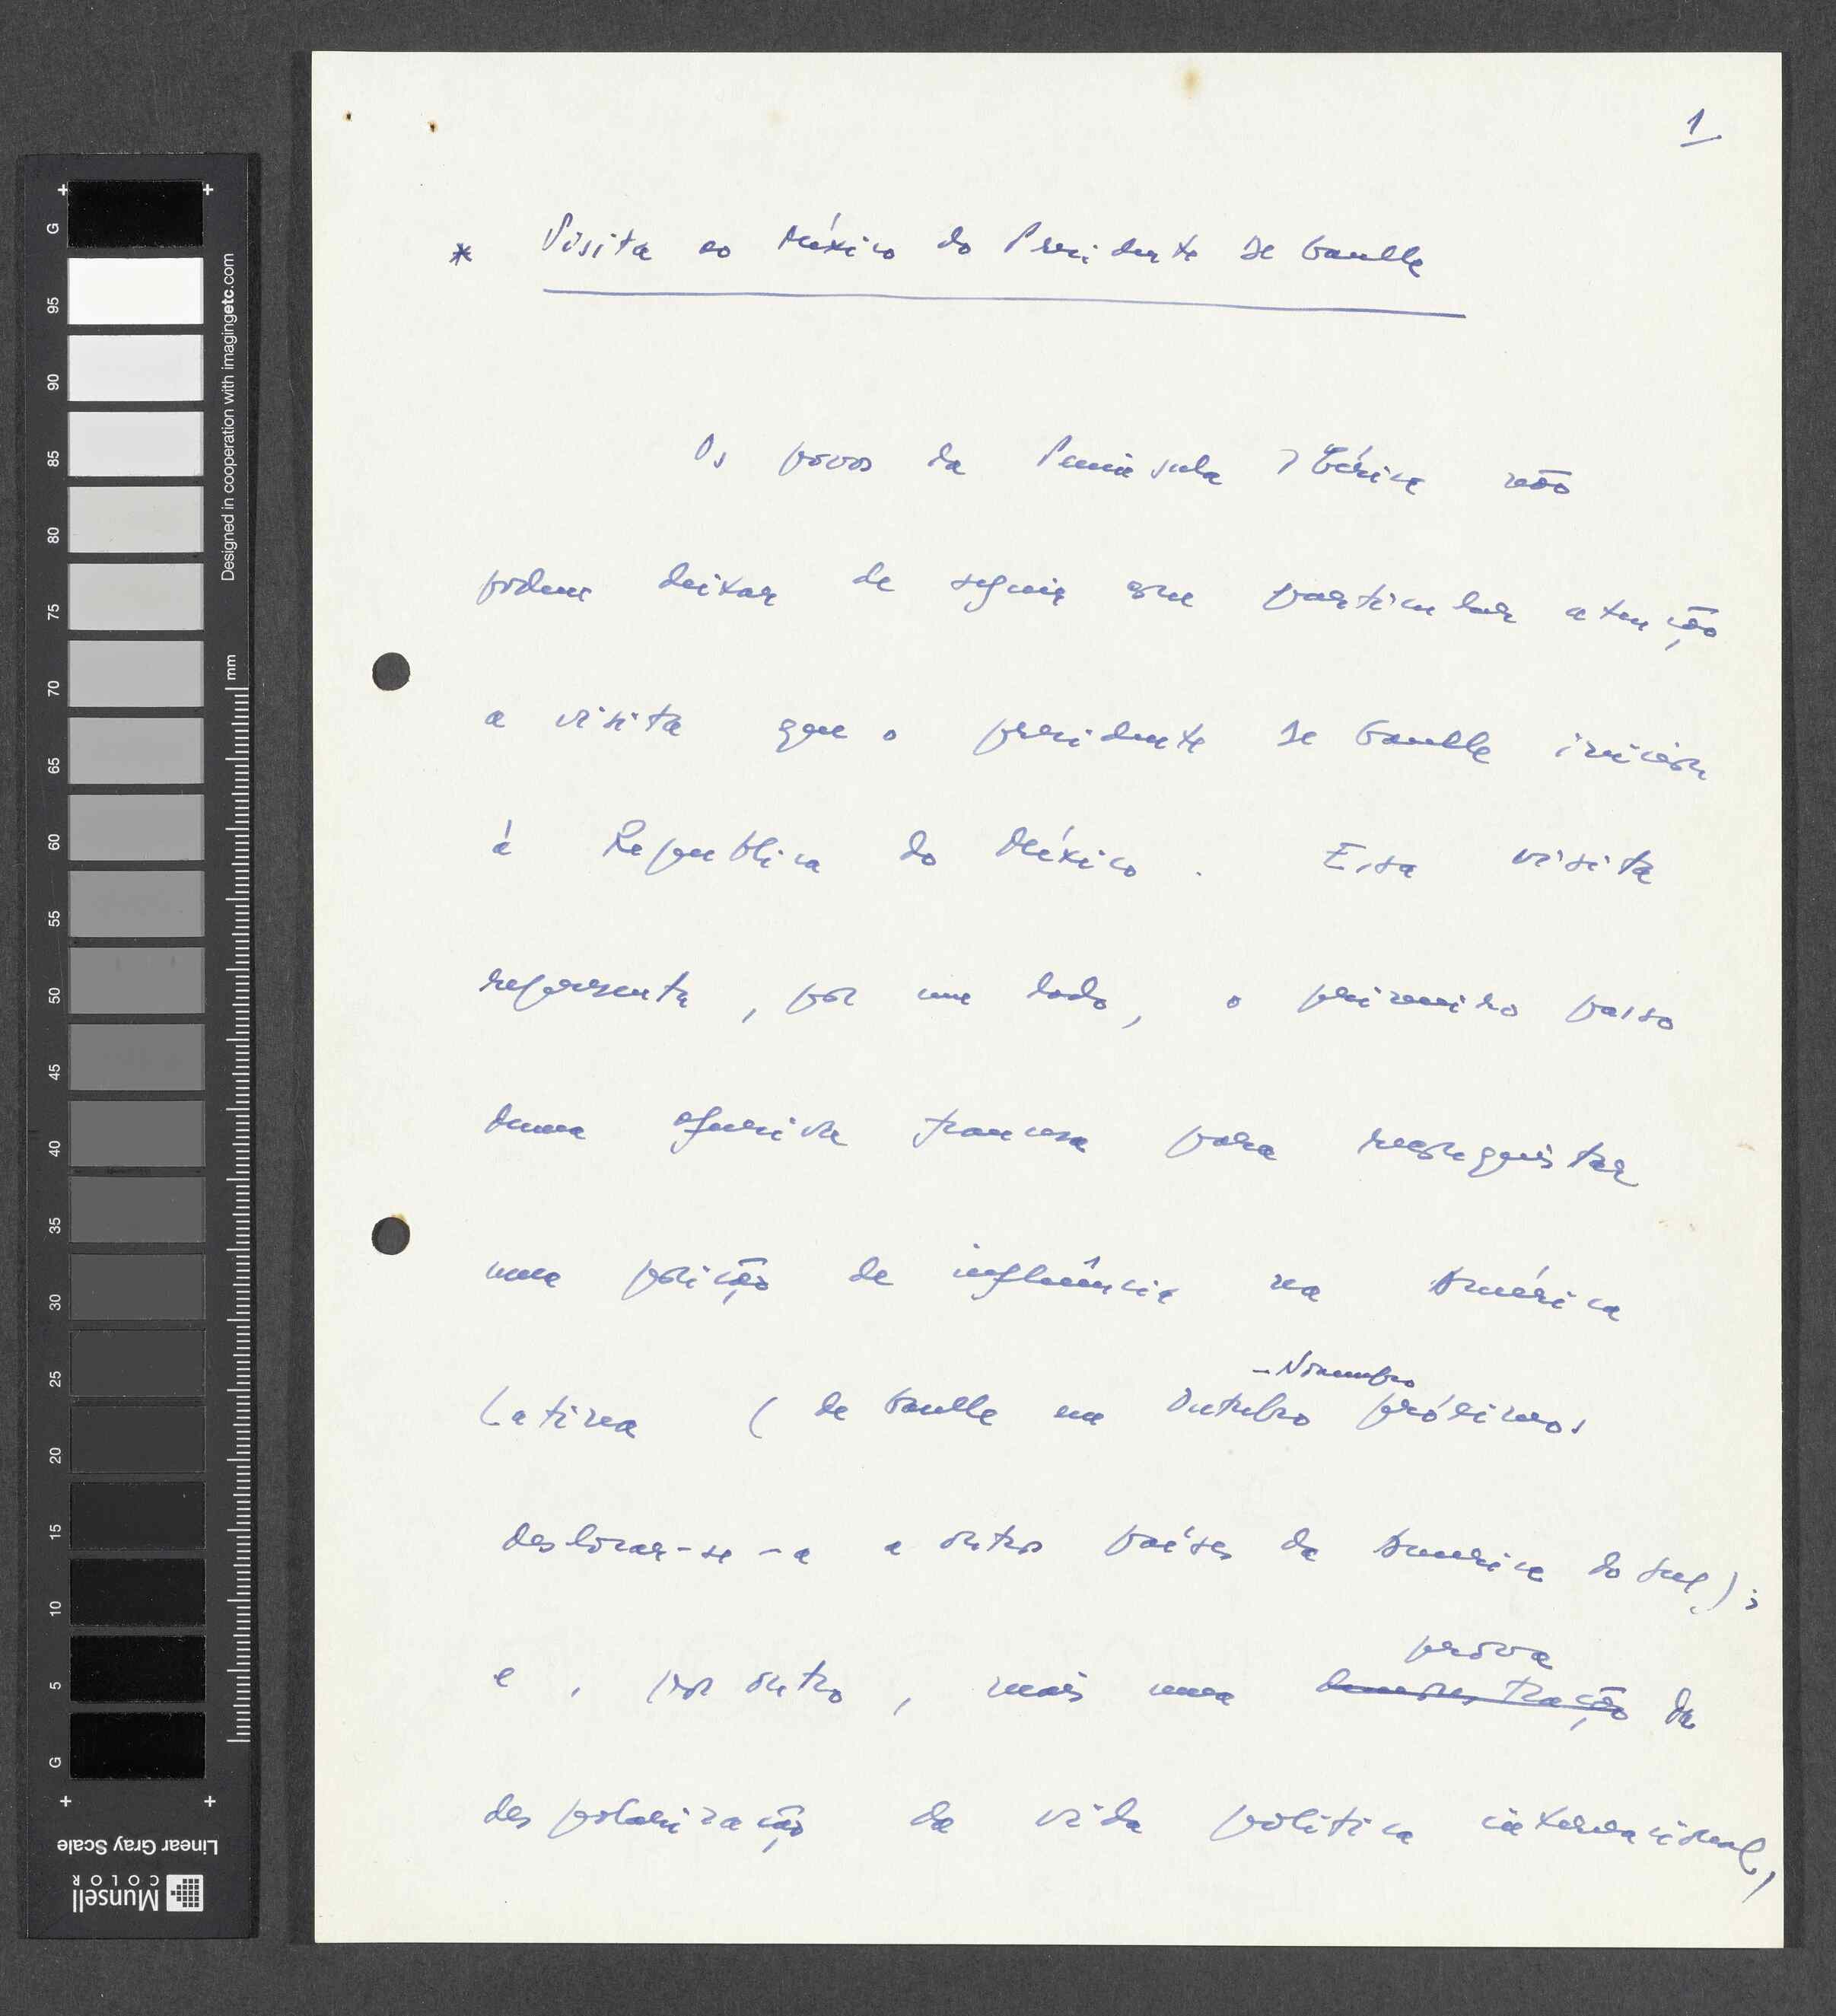 1
* Visita ao México do Presidente De Gaulle
Os povos da Peninsula Ibérica não
podem deixar de seguir com particular atenção
a visita que o presidente De Gaulle inicia
à Republica do México. Essa visita
representa, por um lado, o primeiro passo
duma ofensiva francesa para reconquistar
uma posição de influência na América
- Novembro
Latina (de Gaulle em Outubro próximos
deslocar-se-a a outros países da America do Sul);
prova
e, por outro, mais uma demonstração da
despolarização da vida politica internacional,
G
95
90
85
80
75
70
65
60
55
50
45
40
35
30
25
20
15
10
5
G
mm
Designed in cooperation with imagingetc.com
Linear Gray Scale
Munsell
COLOR